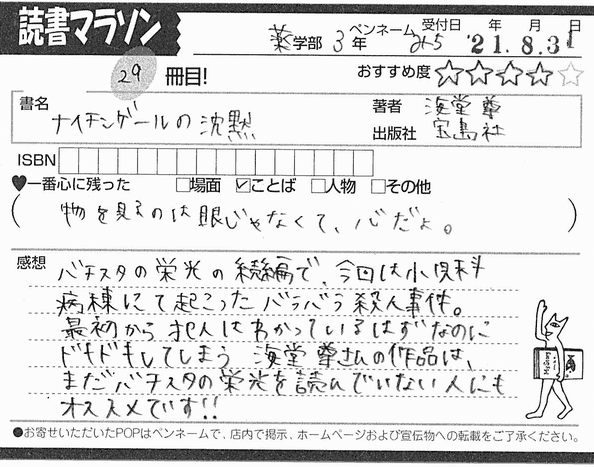 読書マラソン
薬学部 3年 ペンネーム みち 受付日 '21年.8月.31日
29 冊目! おすすめ度 ☆☆☆☆☆
書名 ナイチンゲールの沈黙
著者 海堂尊
出版社 宝島社
ISBN
♥一番心に残った □場面 ☑ことば □人物 □その他
(物を見るのは眼じゃなくて、心だよ。)
感想 バチスタの栄光の続編で、今回は小児科
病棟にて起こったバラバラ殺人事件。
最初から犯人はわかっているはずなのに
ドキドキしてしまう 海堂尊さんの作品は、
まだバチスタの栄光を読んでいない人にも
オススメです!!
●お寄せいただいたPOPはペンネームで、店内で掲示、ホームページおよび宣伝物への転載をご了承ください。